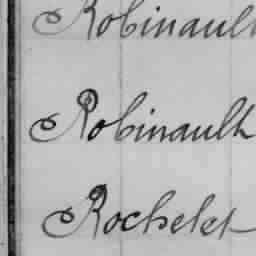 Robinault
Robinault
Rochelet